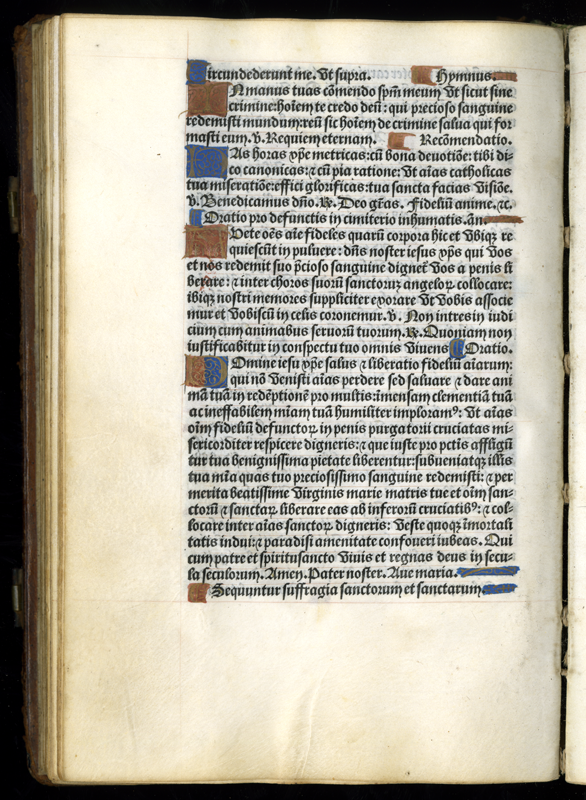 Circundederunt me. Vt supra. Hymnus.
INmanus tuas cõmendo spm̃ meum Vt sicut sine
crimine: hoĩem te credo deũ: qui precioso sanguine
redemisti mundum: reũ sic hoĩem de crimine salua qui for
masti eum. v̄. Requiem eternam. Recõmendatio.
HAs horas xp̃e metricas: cũ bona deuotiõe: tibi di-
co canonicas: ⁊ cũ pia ratione: Vt aĩas catholicas
tua miseratiõe: effici glorificas: tua sancta facias Visiõe.
v̄. Benedicamus dño. ℟. Deo gr̃as. Fideliũ anime. ⁊c.
Oratio pro defunctis in cimiterio inhumatis. añ.
AVete oẽs aĩe fideles quarũ corpora hic et Vbiqȝ re
quiescũt in puluere: dñs noster iesus xp̃s qui Vos
et nos redemit suo p̃cioso sanguine dignet̃ Vos a penis li
berare: ⁊ inter choros suorũ sanctorũ angeloꝝ collocare:
ibiqȝ nostri memores suppliciter exorare Vt Vobis associe
mur et Vobiscũ in celis coronemur. v̄. Non intres in iudi
cium cum animabus seruorũ tuorum. ℟. Quoniam non
iustificabitur in conspectu tuo omnis Viuens Oratio.
DOmine iesu xp̃e salus ⁊ liberatio fideliũ aĩarum:
qui nõ Venisti aĩas perdere sed saluare ⁊ dare ani
mã tuã in redẽptionẽ pro multis: ĩmensam clementiã tuã
ac ineffabilem mĩam tuã humiliter imploramꝰ: Vt aĩas
oĩm fideliũ defunctoꝝ in penis purgatorii cruciatas mi-
sericorditer respicere digneris: ⁊ que iuste pro pctis affligũ
tur tua benignissima pietate liberentur: subueniatqȝ illis
tua mĩa quas tuo preciosissimo sanguine redemisti: ⁊ per
merita beatissime Virginis marie matris tue et oĩm san-
ctorũ ⁊ sanctaꝝ liberare eas ab inferorũ cruciatibꝰ: ⁊ col-
locare inter aĩas sanctoꝝ digneris: Veste quoqȝ ĩmortali
tatis indui: ⁊ paradisi amenitate confoueri iubeas. Qui
cum patre et spiritusancto Viuis et regnas deus in secu-
la seculorum. Amen. Pater noster. Aue maria.
Sequuntur suffragia sanctorum et sanctarum